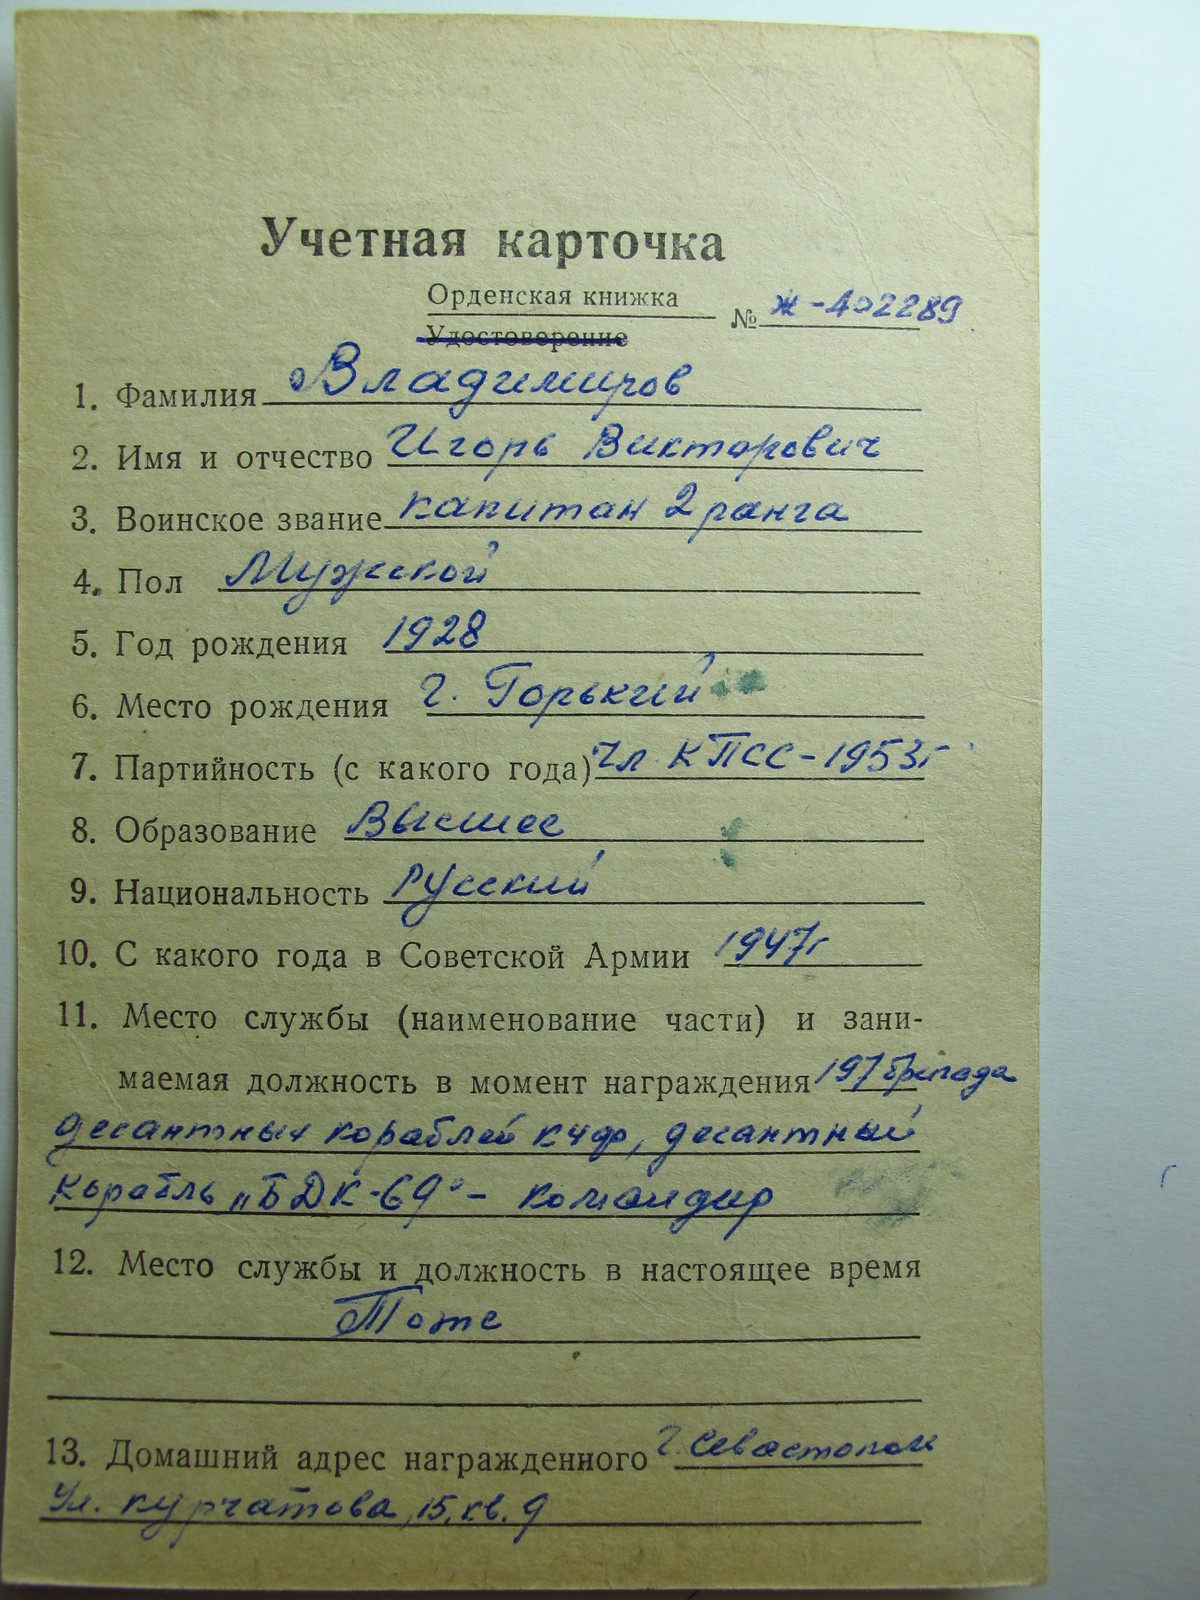 Учетная карточка
Орденская книжка
Удостоверение
№ Ж-402289
1. Фамилия Владимиров
2. Имя и отчество Игорь Викторович
3. Воинское звание капитан 2 ранга
4. Пол Мужской
5. Год рождения 1928
6. Место рождения г. Горький
7. Партийность (с какого года) Чл КПСС-1953г
8. Образование Высшее
9. Национальность Русский
10. С какого года в Советской Армии 1947г
11. Место службы (наименование части) и зани-
маемая должность в момент награждения 197 бригада
десантных кораблей КЧФ, десантный
корабль „БДК-69" - командир
12. Место службы и должность в настоящее время
Тоже
13. Домашний адрес награжденного г. Севастополь
Ул. Курчатова, 15, кв. 9